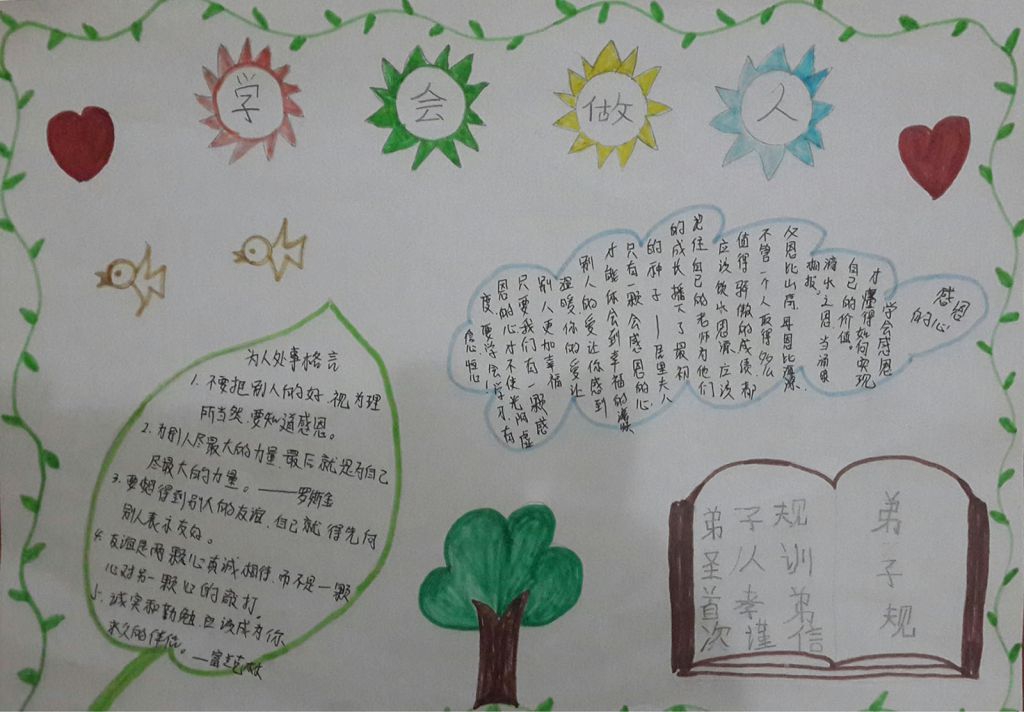 学 会 做 人
感恩
的心
学会感恩
才懂得如何实现
自己的价值。
滴水之恩,当涌泉
相报。
父恩比山高,母恩比海深
不管一个人取得多么
值得骄傲的成绩,都
应该饮水思源,应该
记住自己的老师为他们
的成长播下了最初
的种子——居里夫人
只有一颗会感恩的心,
才能体会到幸福的
别人的爱让你感到
温暖,你的爱让
别人更加幸福
只要我们有一颗感
恩的心才不使光阴虚
度,要学会学习,有
信恒心!
为人处事格言
1. 不要把别人的好,视为理
所当然,要知道感恩。
2. 为别人尽最大的力量,最后就是为自己
尽最大的力量。——罗斯金
3. 要想得到别人的友谊,自己就得先向
别人表示友好。
4. 友谊是两颗心真诚相待,而不是一颗
心对另一颗心的敲打。
5. 诚实和勤勉,应该成为你
永久的伴侣。—富兰克林
弟子规
圣人训
首孝弟
次谨信
弟
子
规